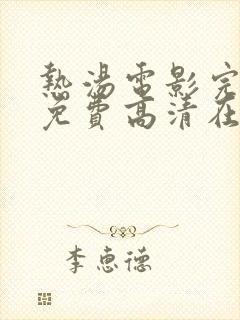 熱湯電影完
免費高清在
李惠德